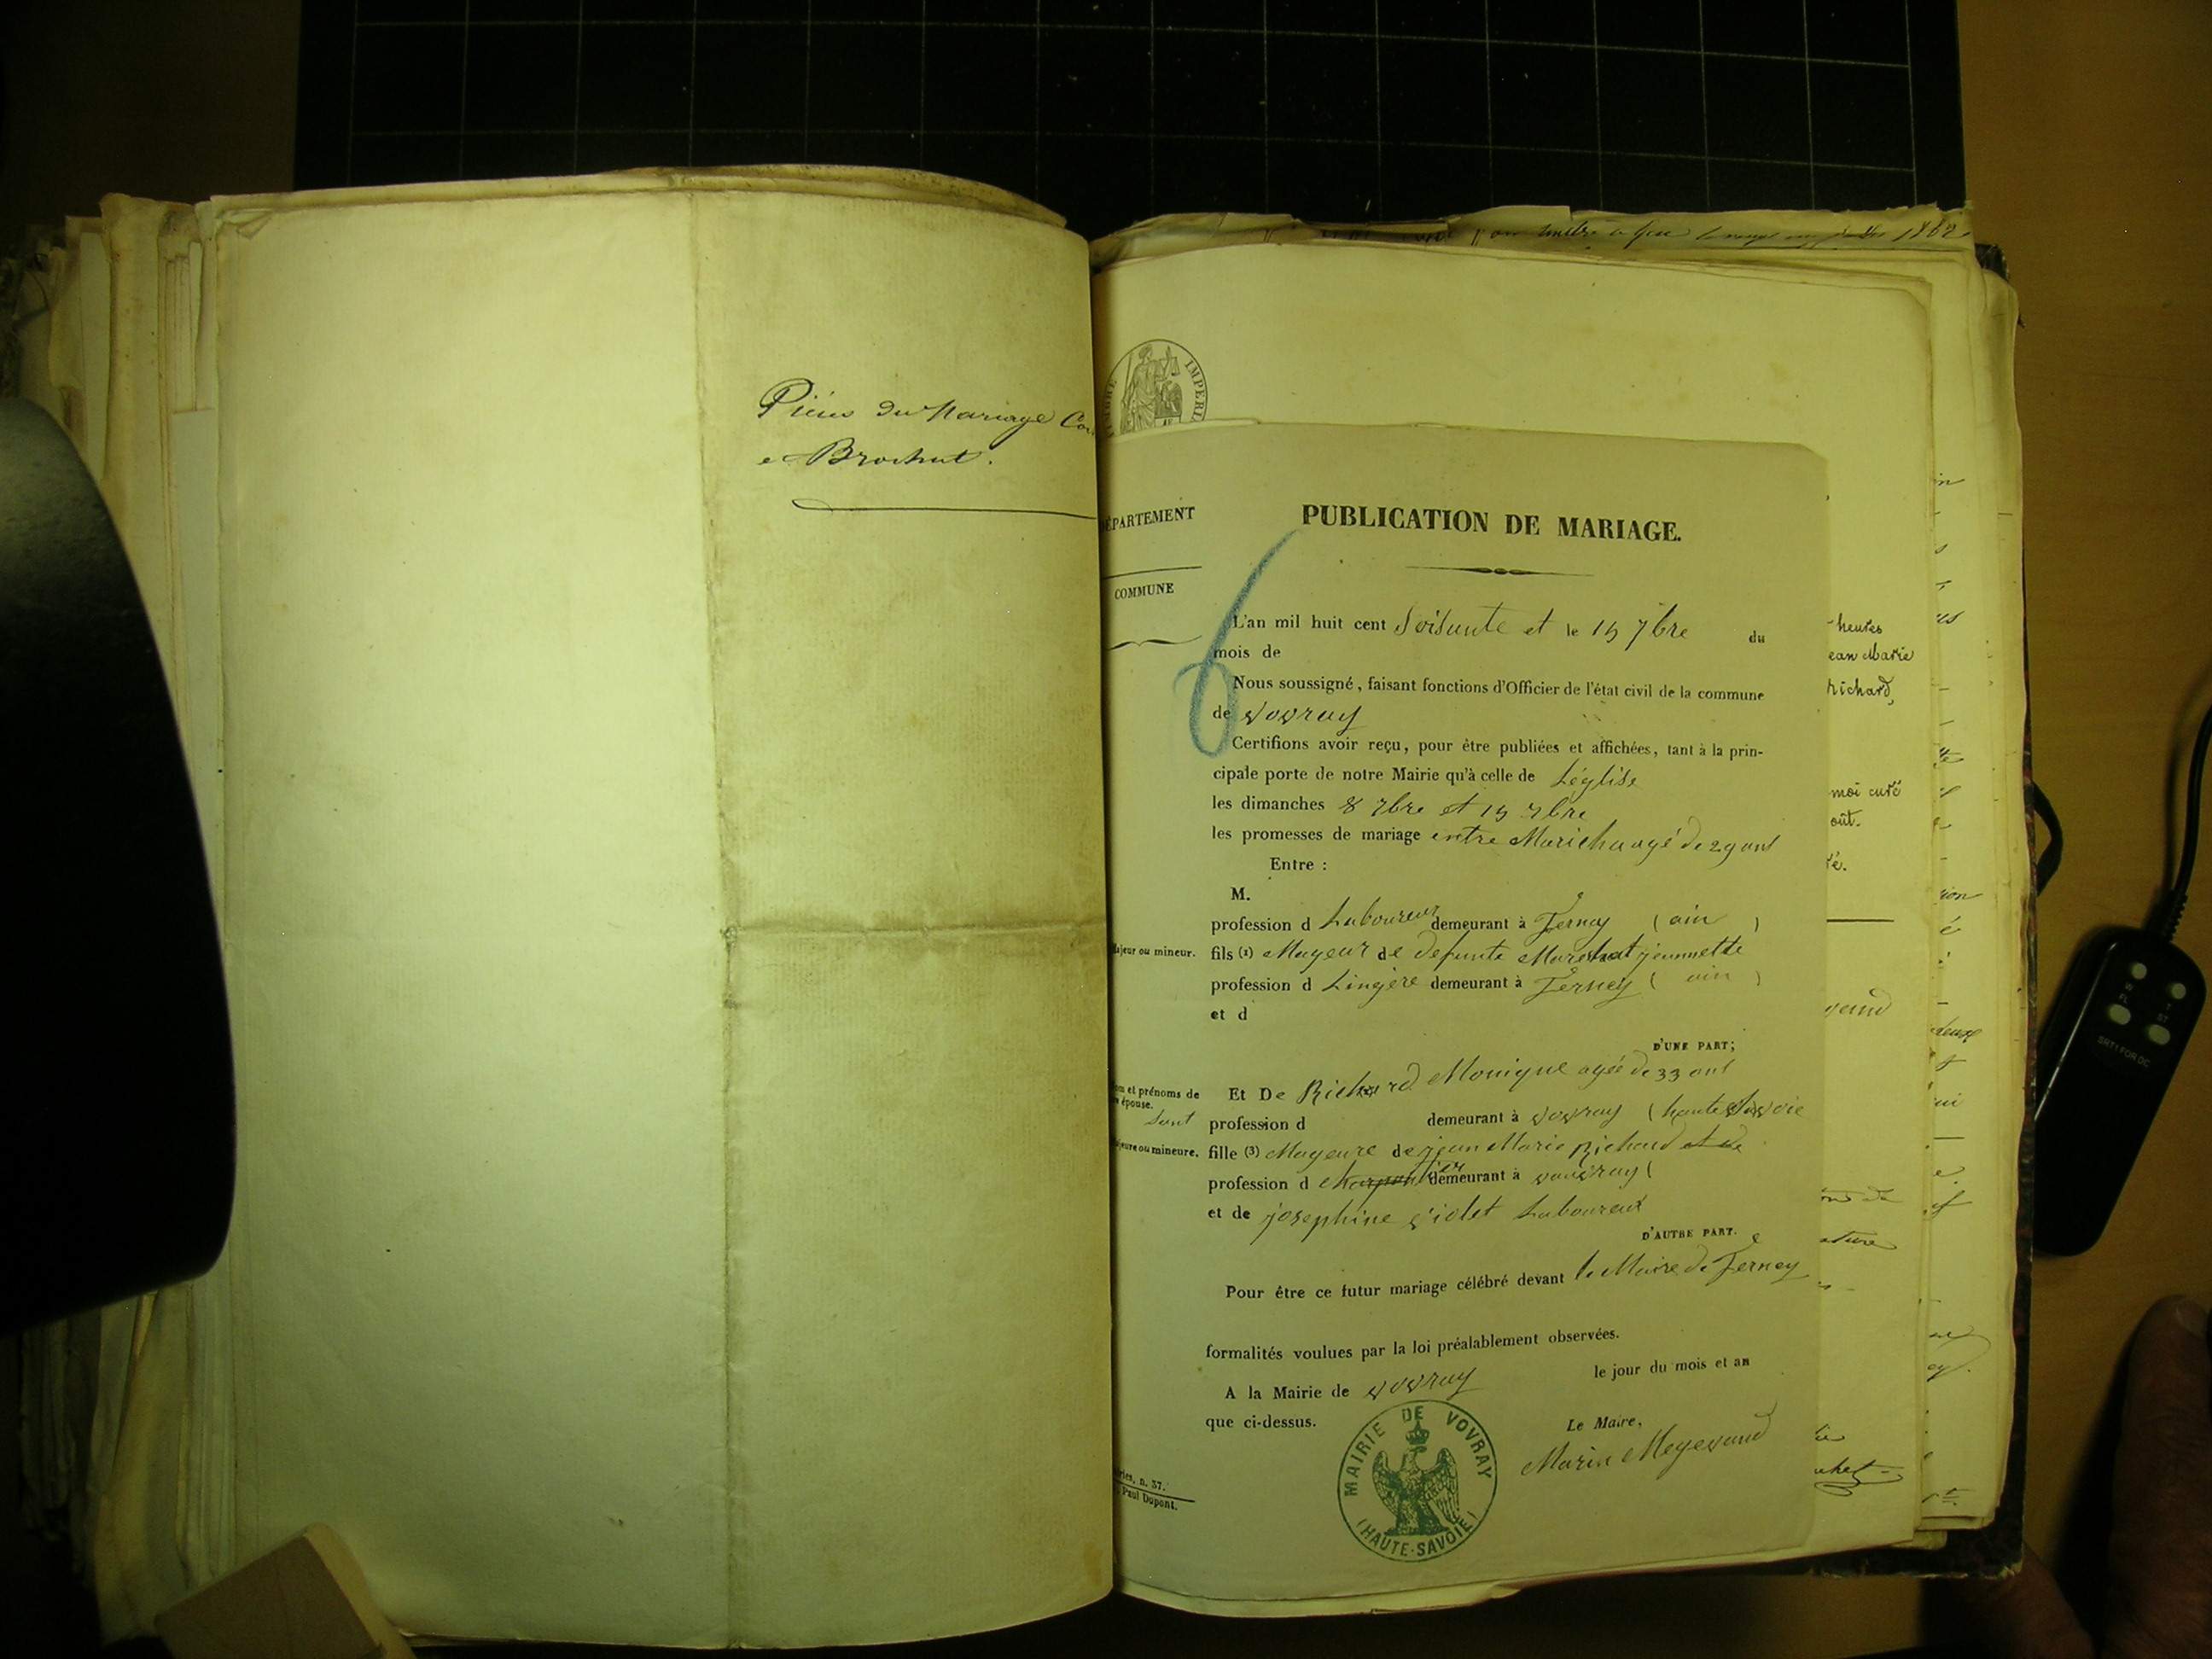 1862
Pièces du Mariage
et Brochut.
IMPERI
DÉPARTEMENT
PUBLICATION DE MARIAGE.
COMMUNE
6
L'an mil huit cent Soisante et le 15 7bre du
mois de
Nous soussigné, faisant fonctions d'Officier de l'état civil de la commune
de Vovray
Certifions avoir reçu, pour être publiées et affichées, tant à la prin-
cipale porte de notre Mairie qu'à celle de Léglise
les dimanches 8 7bre et 15 7bre
les promesses de mariage entre agé de 29 ans
Entre :
M.
profession d Laboureur demeurant à Ferney (ain)
Majeur ou mineur. fils (1) Mageur de defunte jeannette
profession d Lingère demeurant à Ferney (ain)
et d
D'UNE PART;
om et prénoms de
épouse.
Et De Richard Monique agée de 33 ans
profession d demeurant à vovray (haute Savoie
eure ou mineure. fille (3) Mageure de jean Marie Richard et de
profession d charpentier demeurant à vouvray (
et de josephine violet Laboureur
D'AUTRE PART.
Pour être ce futur mariage célébré devant le Maire de Ferney
formalités voulues par la loi préalablement observées.
A la Mairie de vovray le jour du mois et an
que ci-dessus.
Le Maire,
Marin Megevand
MAIRIE DE VOVRAY
(HAUTE-SAVOIE)
n. 37.
Paul Dupont.
heures
ean Marie
Richard,
moi curé
oût.
SRT1 FOR DC